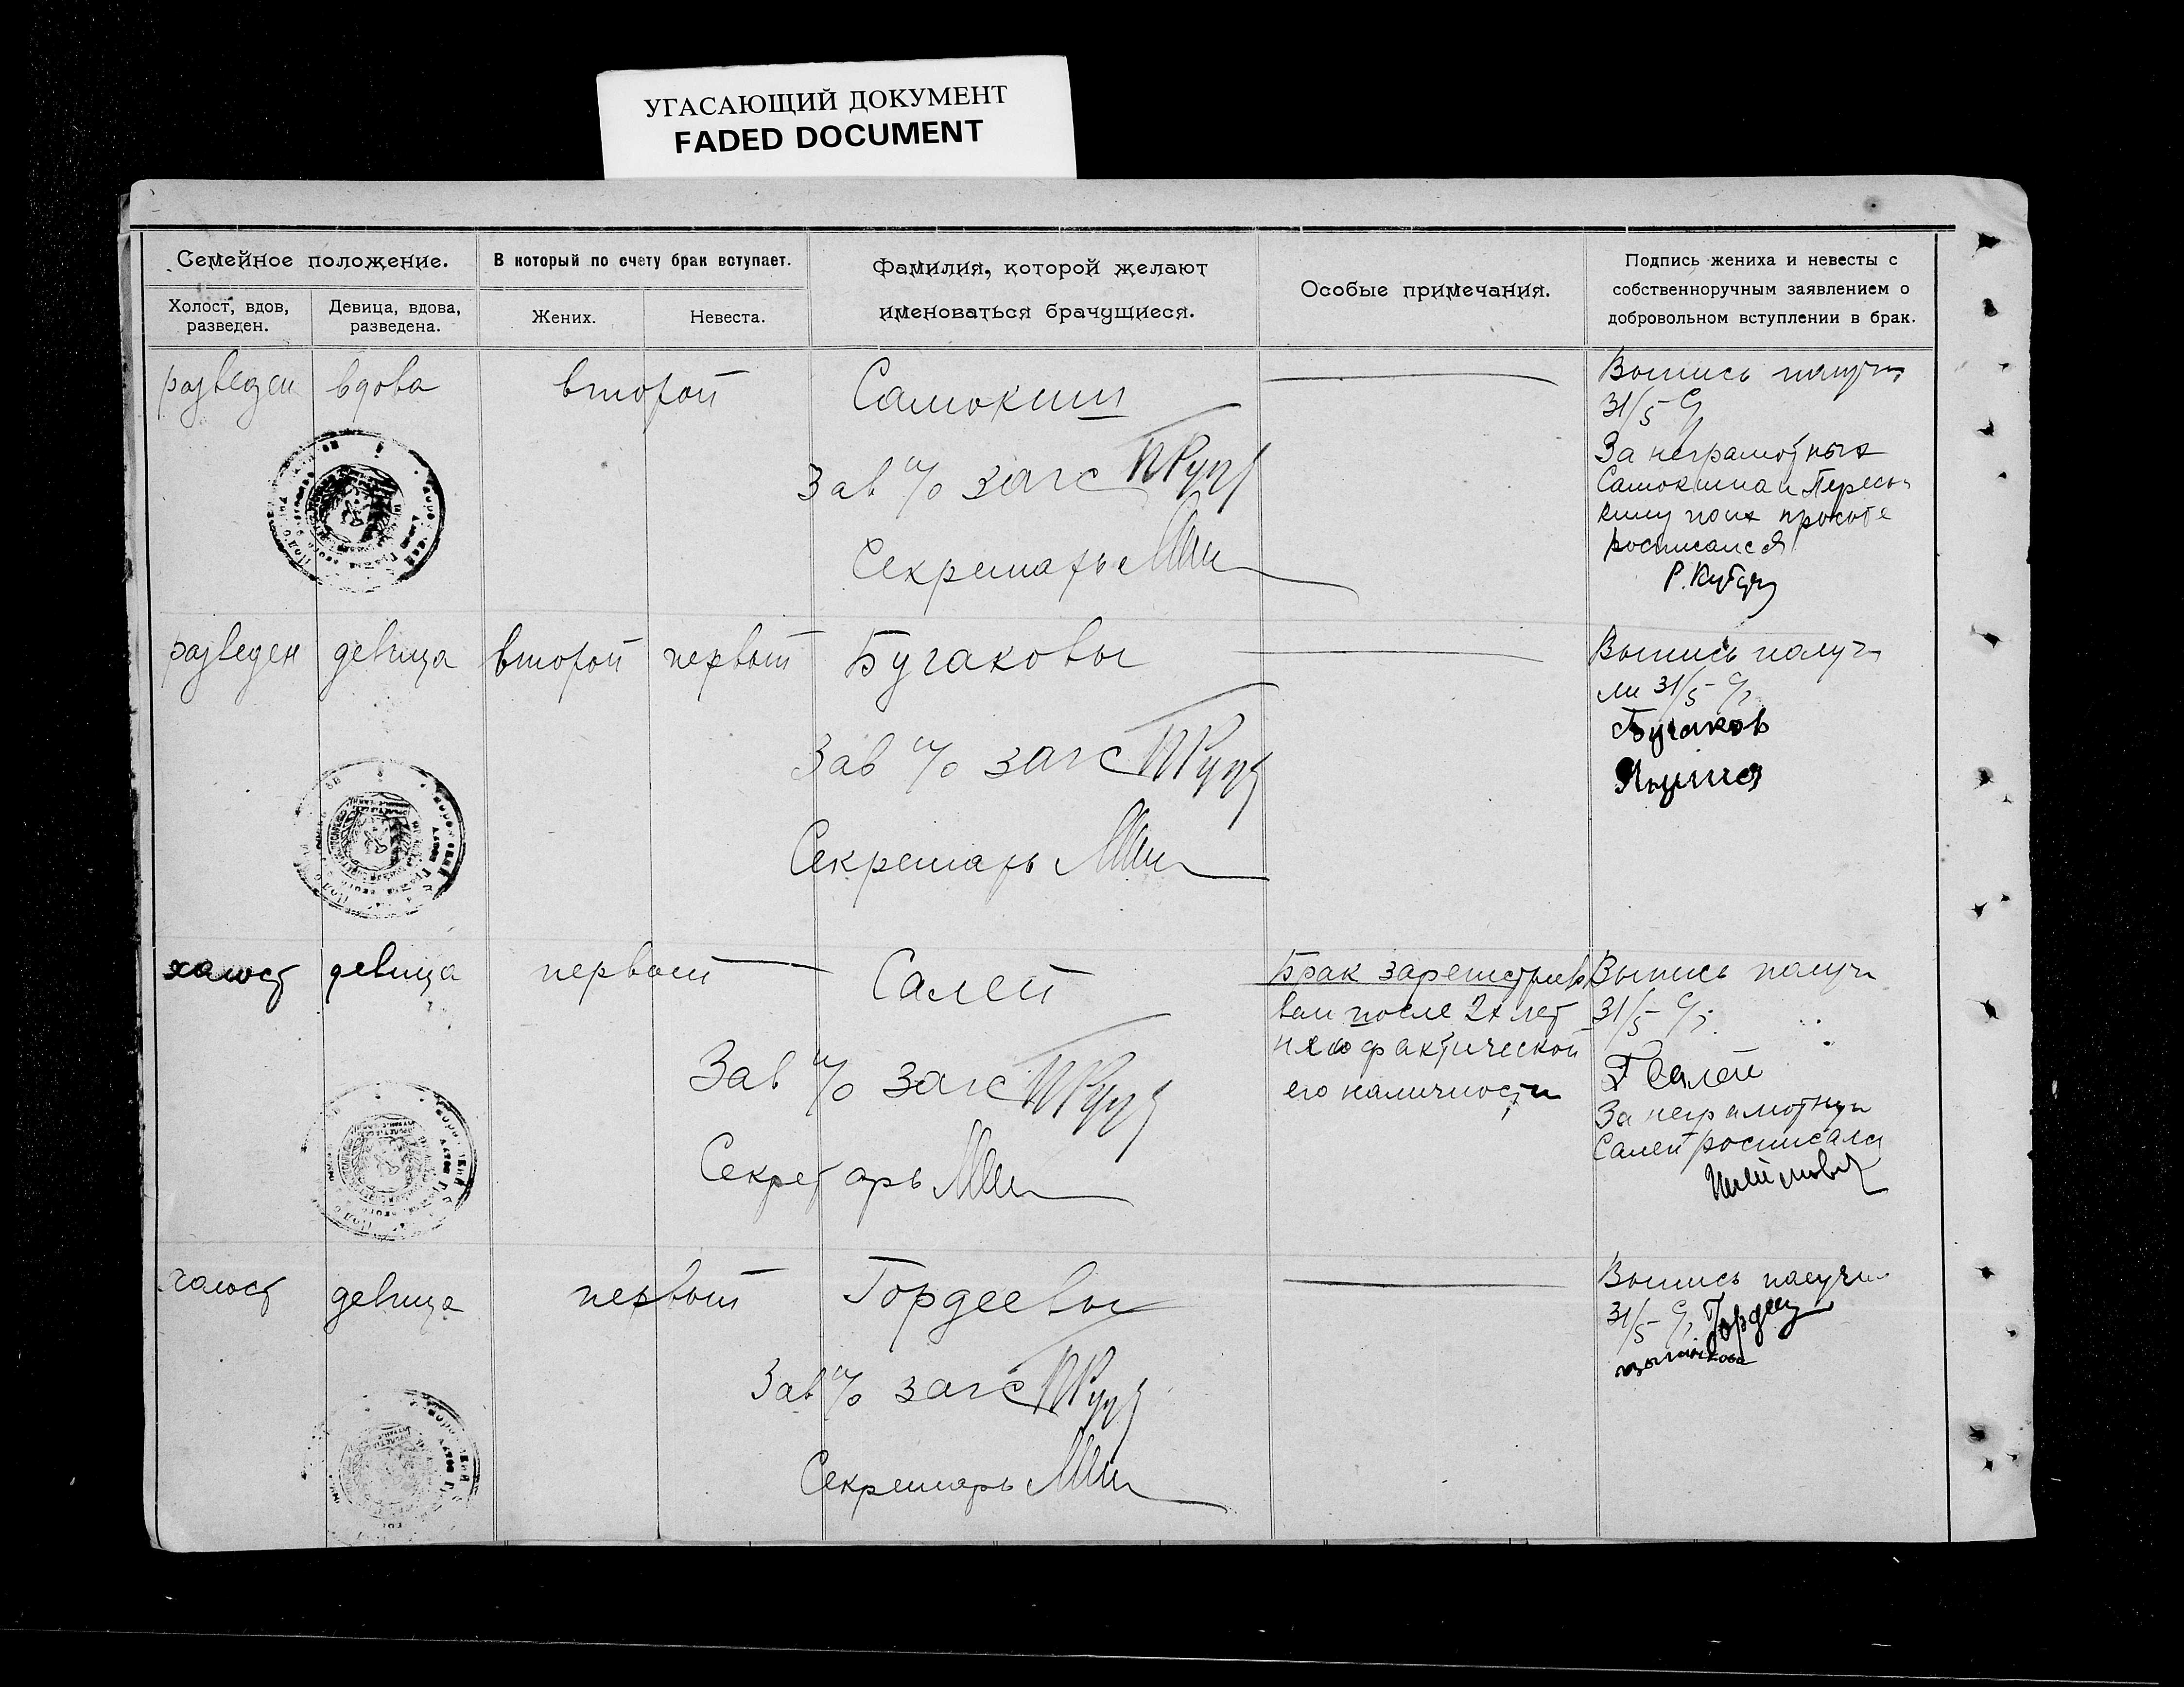 УГАСАЮЩИЙ ДОКУМЕНТ
FADED DOCUMENT
Семейное положение.
В который по счету брак вступает.
Фамилия, которой желают
именоваться брачущиеся.
Особые примечания.
Подпись жениха и невесты с
собственноручным заявлением о
добровольном вступлении в брак.
Холост, вдов,
разведен.
Девица, вдова,
разведена.
Жених.
Невеста.
разведен
вдова
второй
Самокиш
Зав п/о загс
Секретарь
Выпись получ
31/5
За неграмотных
Самокиша и
росписался
разведен
девица
второй
первый
Бугаковы
Зав п/о загс
Секретарь
Выпись получ
ли 31/5
Бугаков
халост
девица
первый
Салей
Зав п/о загс
Секретарь
Брак зарегистриро
ван после 2х лет
фактической
его наличности
Выпись получи
31/5
Салей
За неграмотную
Салей росписался
халост
девица
первый
Гордеевы
Зав п/о загс
Секретарь
Выпись получи
31/5